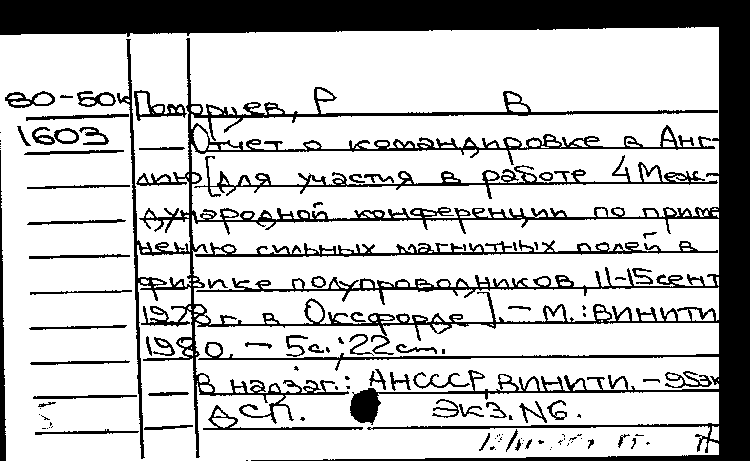 80-50к Поморцев, Р В
1603 Отчет о командировке в Анг-
лию [для участия в работе 4 Меж-
дународной конференции по приме
нению сильных магнитных полей в
физике полупроводников, 11-15 сент
1978 г. в Оксфорде]. - М.: ВИНИТИ
1980. - 5 с.; 22 см.
В надзаг.: АН СССР, ВИНИТИ. - 95 эк
5 ДСП. ЭКЗ. N6.